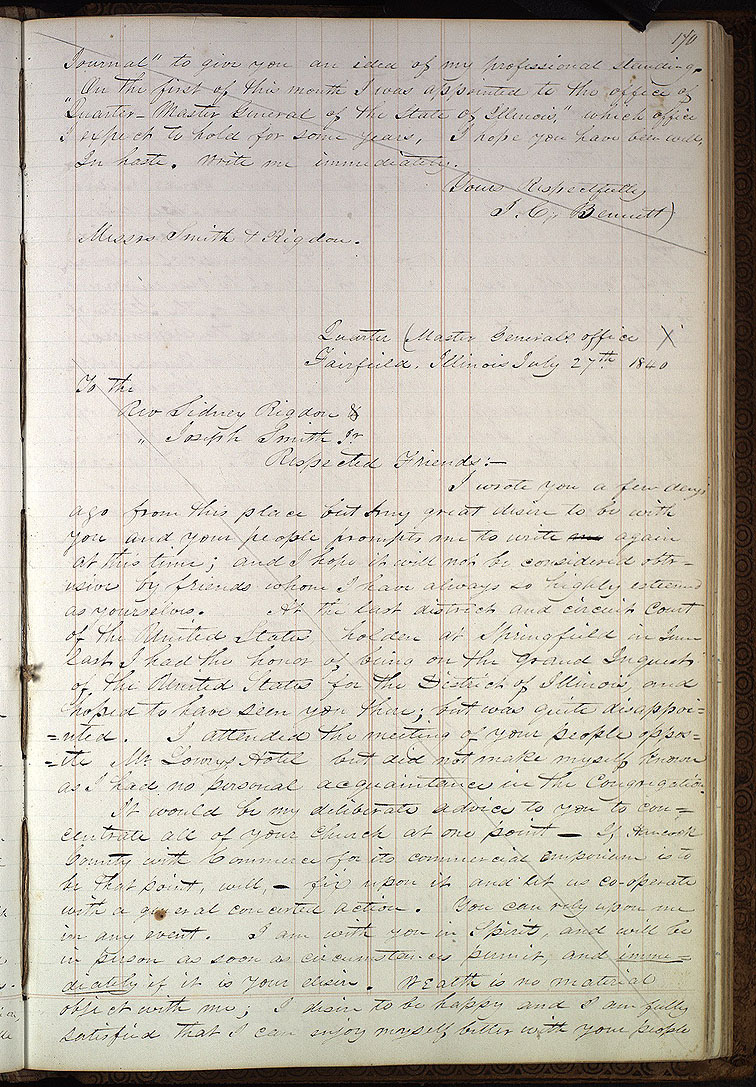 170
Journal" to give you an idea of my professional standing.
On the first of this month I was appointed to the office of
"Quarter-Master General of the State of Illinois," which office
I expect to hold for some years, I hope you have been well,
In haste. Write me immediately.
Yours Respectfully
J. C. Bennett)
Messrs Smith & Rigdon.
Quarter (Master Generals office X
Fairfield, Illinois July 27th 1840
To the
Rev Sidney Rigdon &
" Joseph Smith Jr
Respected Friends:—
I wrote you a few days
ago from this place but my great desire to be with
you and your people prompts me to write again
at this time; and I hope it will not be considered obtr-
usive by friends whom I have always so highly esteemed
as yourselves. At the last district and circuit Court
of the United States holden at Springfield in June
last I had the honor of being on the Grand Inquest
of the United States for the District of Illinois, and
hoped to have seen you there; but was quite disappoi=
=nted. I attended the meeting of your people oppos=
=ite Mr Lowrys Hotel but did not make myself known
as I had no personal acquaintance in the Congregation.
It would be my deliberate advice to you to con=
centrate all of your church at one point — If Hancock
County with Commerce for its commercial emporium is to
be that point, will, – fix upon it and let us co-operate
with a general concerted action. You can rely upon me
in any event. I am with you in Spirit, and will be
in person as soon as circumstances permit, and imme=
diately if it is your desire. Wealth is no material
object with me; I desire to be happy and I am fully
satisfied that I can enjoy myself better with your people